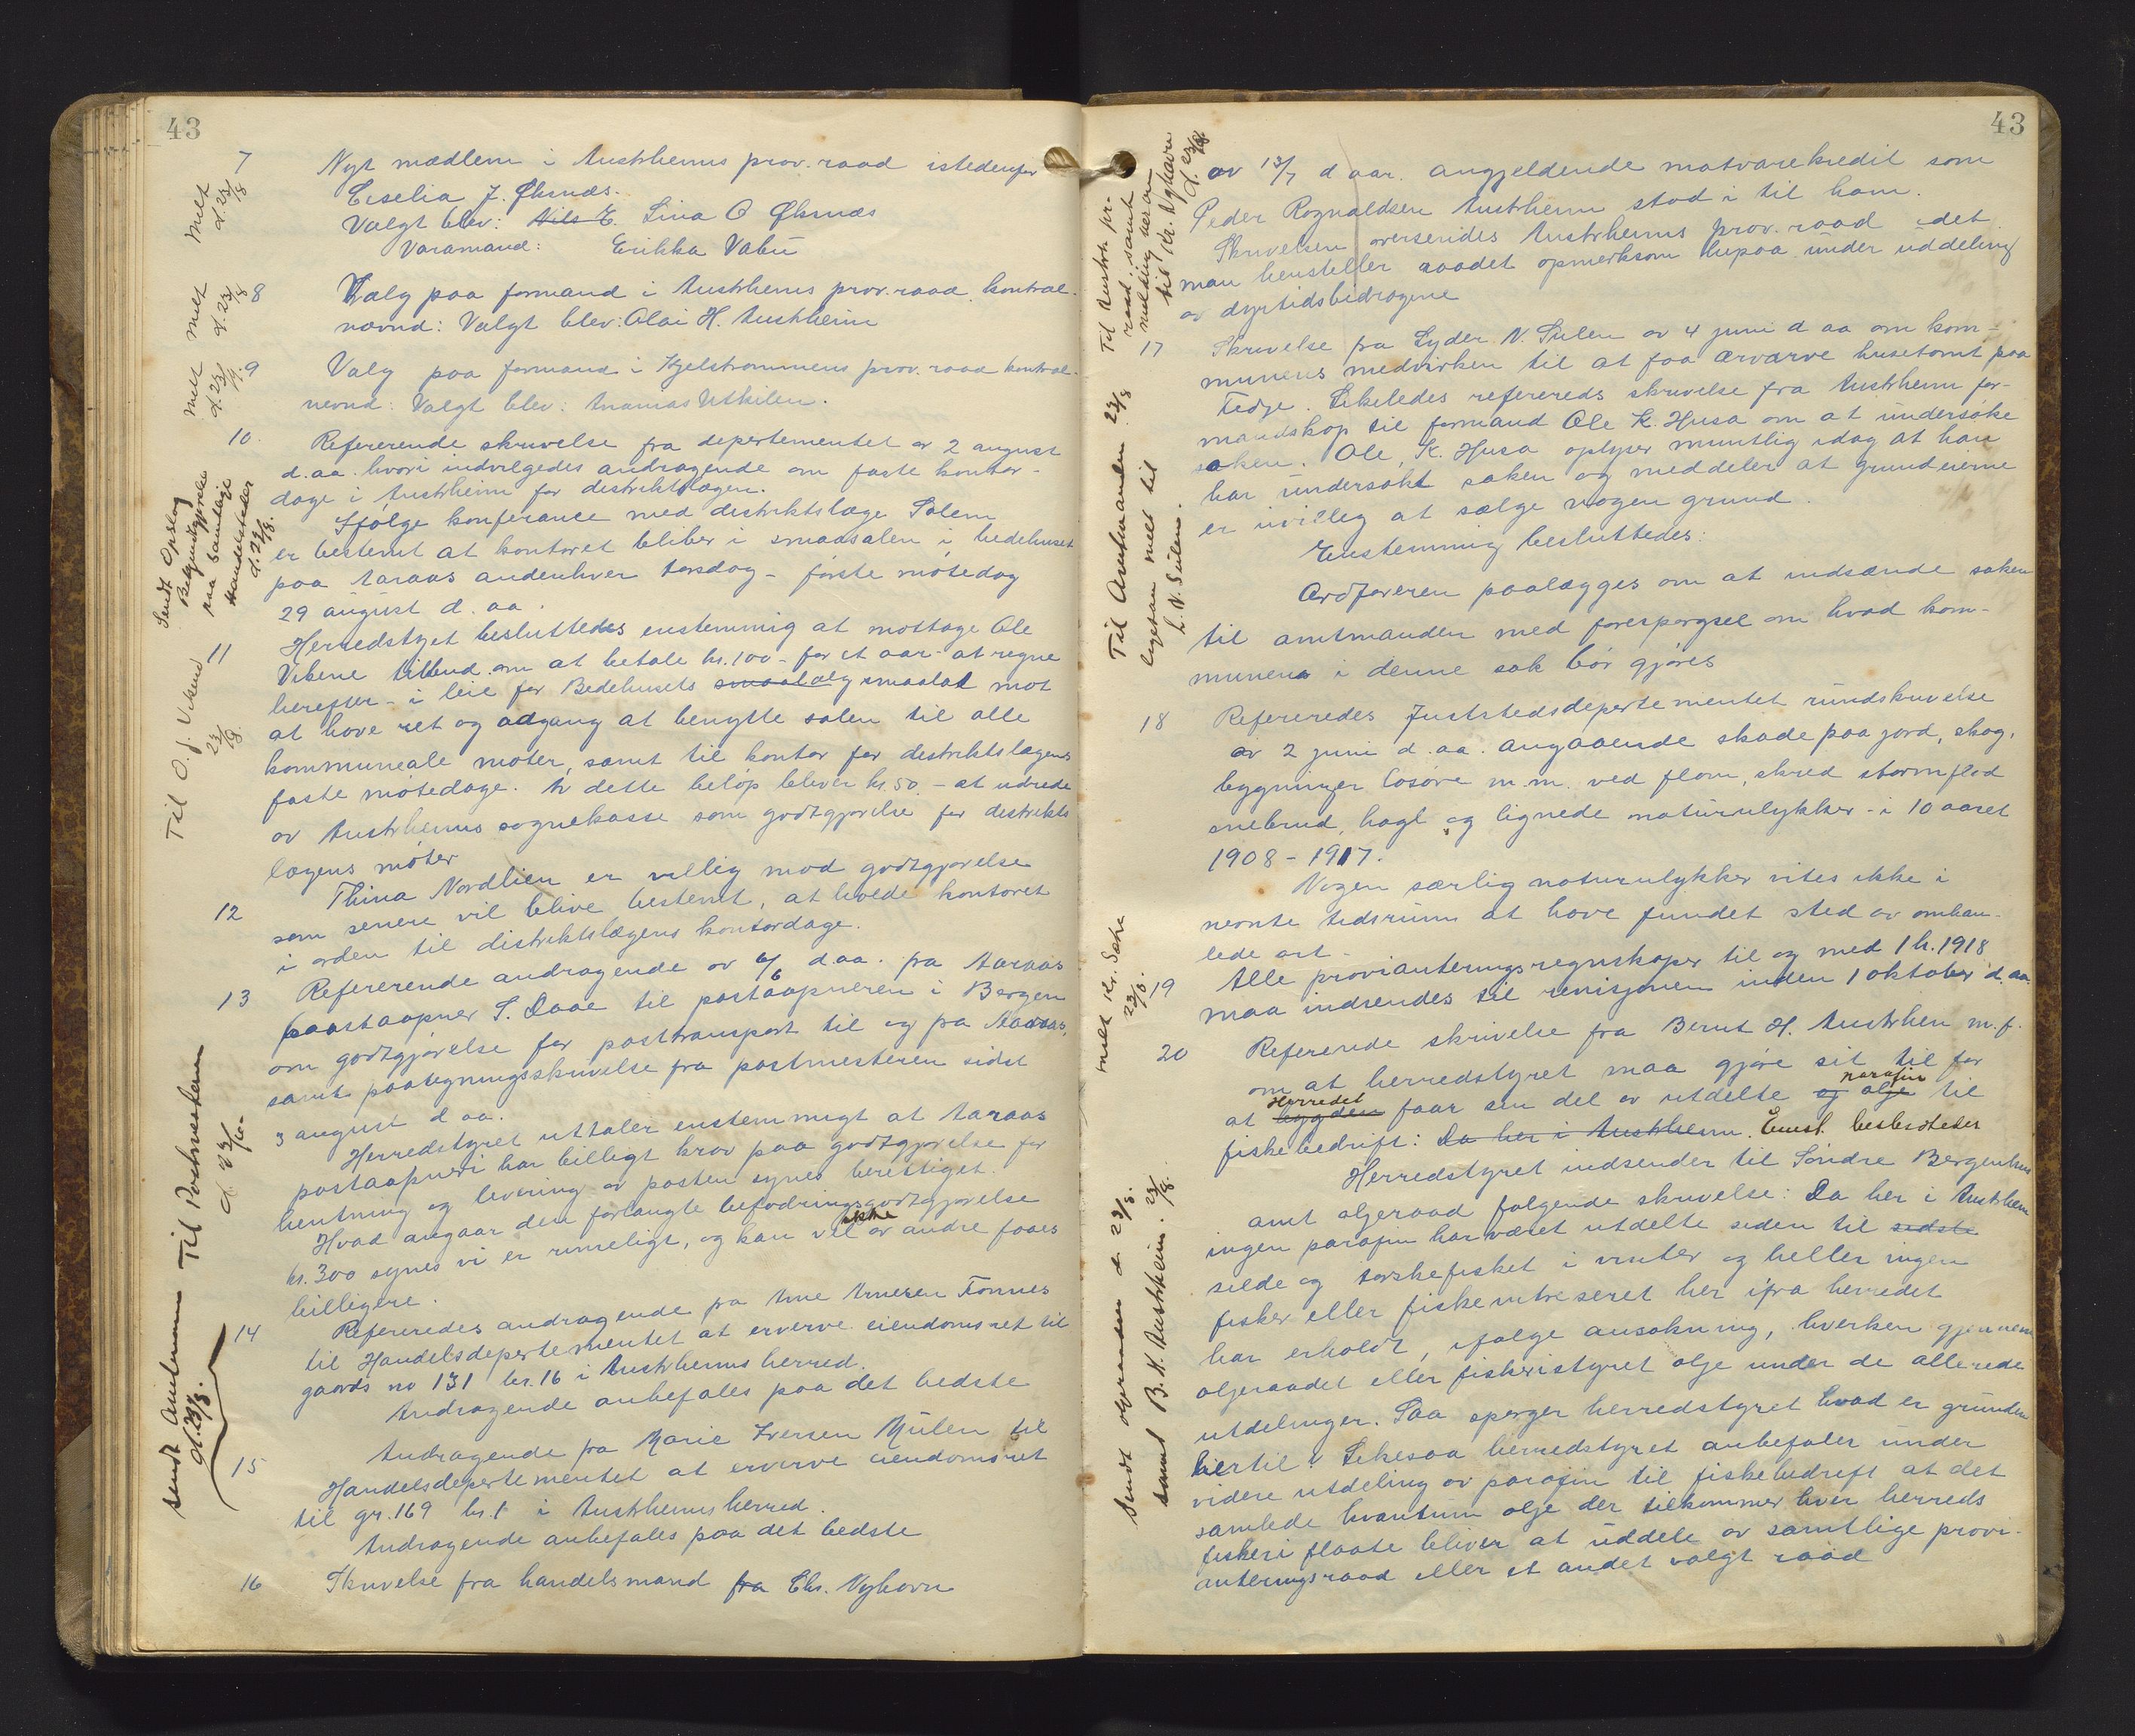 43
7 Nyt mædlem i Austrheims prov. raad istedenfor
Meldt d. 23/8
Ceselia J. Øksnæs.
Valgt blev: Nils E. Lina O Øksnæs
Varamand: Erikka Vabø
8 Valg paa formand i Austrheims prov. raad kontrol-
Meldt d. 23/8
nævnd: Valgt blev: Olai H. Austrheim
9 Valg paa formand i Kjelstrommens prov. raad kontrol-
Meldt d. 23/8
nevnd: Valgt blev: Andreas Utkilen.
10. Refererende skrivelse fra depertementet av 2 august
d. aa. hvori indvilgedes andragende om faste kontor-
dage i Austrheim for distriktslægen.
Ifølge konferance med distriktslæge Solem
er bestemt at kontoret bliber i smaasalen i bedehuset
paa Aaraas andenhver torsdag - første møtedag
29 august d. aa.
Sendt Opslag
Bekjentgjørelse
paa samtlige
Handelsteder
d. 23/8.
11 Herredstyet besluttedes enstemmig at mottage Ole
Vikene tilbud om at betale kr. 100 - for et aar - at regne
herefter - i leie for Bedehusets smaalaeg smaalat mot
at have ret og adgang at benytte salen til alle
kommuneale møter, samt til kontor for distriktslægens
faste møtedage. Av dette beløp bliver kr. 50. - at udrede
av Austrheims sognekasse som godtgjørelse for distrikts
lægens møter
Til O. J. Vikene
23/8.
12 Thina Nordlien er villig mod godtgjørelse
som senere vil blive bestemt, at holde kontoret
i orden til distriktslægens kontordage.
13 Refererende andragende av 6/6 d.aa. fra Aaraas
poastaapner S. Daae til postaapneren i Bergen
om godtgjørelse for posttransport til og fra Aaraas,
samt paategningsskrivelse fra postmesteren sidst
3 august d aa.
Herredstyret uttaler enstemmigt at Aaraas
postaapneri har billigt krav paa godtgjørelse for
hentning og levering av posten synes berettiget.
Hvad angaar den forlangte befodringsgodtgjørelse
kr. 300 synes vi er rimeligt, og kan vel ikke av andre faaes
billigere.
Til Postmesteren
d. 23/8.
14 Refereredes andragende fra Arne Arnesen Fonnes
til Handelsdepertementet at erverve eiendomsret til
gaards no 131 br. 16 i Austrheims herred.
Andragende anbefales paa det bedste
15 Andragende fra Marie Iversen Mulen til
Handelsdepertementet at erverve eiendomsret
til gr. 169 br. 1 i Austrheims herred.
Andragende anbefales paa det bedste
Sendt Amtmann
d. 23/8.
16 Skrivelse fra handelsmand fra Chr. Nyhavn
43
av 13/7 d aar. angjeldende matvarekredit som
Peder Rognaldsen Austrheim stod i til ham.
Skrivelsen oversendes Austrheims prov. raad idet
man henstiller raadet opmerksom herpaa under uddeling
av dyrtidsbidragene
Til Austrh. pr-
raad, samt
melding herom
til Kr. Nyhavn
d. 23/8.
17 Skrivelse fra Lyder N. Sulen av 4 juni d aa om kom-
munens medvirken til at faa ærvarve husetomt paa
Fedje. Likeledes refereres skrivelse fra Austrheim for-
mandskap til formand Ole K. Husa om at undersøke
saken. Ole K. Husa oplyser muntlig idag at han
har undersøkt saken og meddeler at grundeierne
er uvillig at sælge nogen grund.
Enstemmig besluttedes:
Ordføreren paalægges om at indsænde saken
til amtmanden med forespørgsel om hvad kom-
munena i denne sak bør gjøres
Til Amtmanden 23/8
ligesaa melt til
L. N. Sulen.
18 Refereredes Juststedsdepertementet rundskrivelse
av 2 juni d. aa. angaaende skade paa jord, skog,
bygninger losøre m.m. ved flom, skred stormflod
snebrud, hagl og lignede naturulykker - i 10 aaret
1908 - 1917.
Nogen særlig naturulykker vites ikke i
nevnte tidsrum at have fundet sted av omhan-
lede art -
19 Alle provianteringsregnskaper til og med 1 h. 1918
maa indsendes til revisjonen inden 1 oktober d. aa.
Meldt Kr. Sætre
23/8.
20 Refererede skrivelse fra Bernt H. Austrhem m. f.
om at herredstyret maa gjøre sit til for
at bygden Herredet faar sin del av utdelte og olje parafin til
fiskebedrift: Da her i Austrheim. Enst. besluttedes
Herredstyret indsender til Søndre Bergenhus
amt oljeraad følgende skrivelse: Da her i Austrhem
ingen parafin har været utdelte siden til sidste
silde og torskefisket i vinter og heller ingen
fisker eller fiskeintreseret her ifra herredet
har erholdt, ifølge ansøkning, hverken gjennem
oljeraadet eller fiskeristyret olje under de allerede
utdelinger. Saa spørger herredstyret hvad er grunden
hertil? Likesaa herredstyret anbefaler under
videre utdeling av parafin til fiskebedrift at det
samlede kvantum olje der tilkommer hver herreds
fiskeriflaate bliver at uddele av samtlige provi-
anteringsraad eller et andet valgt raad
Sendt oljeraaden d. 23/8.
samt B. H. Austrheim. 23/8.